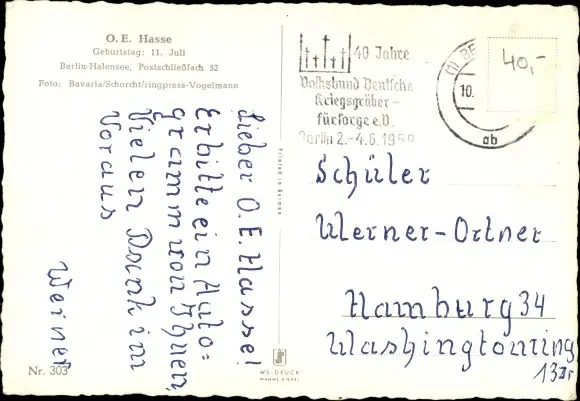 O. E. Hasse
Geburtstag: 11. Juli
Berlin-Halensee, Postschließfach 52
Foto: Bavaria/Schorcht/ringpress-Vogelmann
Lieber O. E. Hasse!
Erbitte ein Auto=
gramm von Ihnen
Vielen Dank im
Voraus
Werner
Nr. 303
Printed in Germany
WS-DRUCK
40 Jahre
Volksbund Deutsche
Kriegsgräber-
fürsorge e.V.
Berlin 2.-4.6.1959
(1) BE
10.
ab
40,-
Schüler
Werner-Ortner
Hamburg 34
Washingtonring